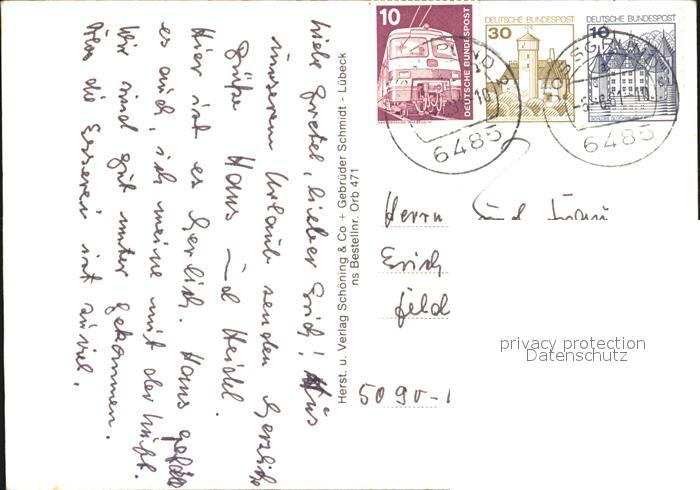 Liebe Gretel, lieber Erich! Aus
unserem Urlaub senden herzliche
Grüße Hans und Heidel.
Hier ist es herrlich. Hans gefällt
es auch, ich meine mit der Luft.
Wir sind gut unter gekommen.
die Esserei ist zuviel.
Herst. u. Verlag Schöning & Co + Gebrüder Schmidt - Lübeck
ns Bestellnr. Orb 471
10
DEUTSCHE BUNDESPOST
DEUTSCHE BUNDESPOST
30
DEUTSCHE BUNDESPOST
10
6485
6485
Herrn und Frau
Erich
Feld
5090-
privacy protection
Datenschutz